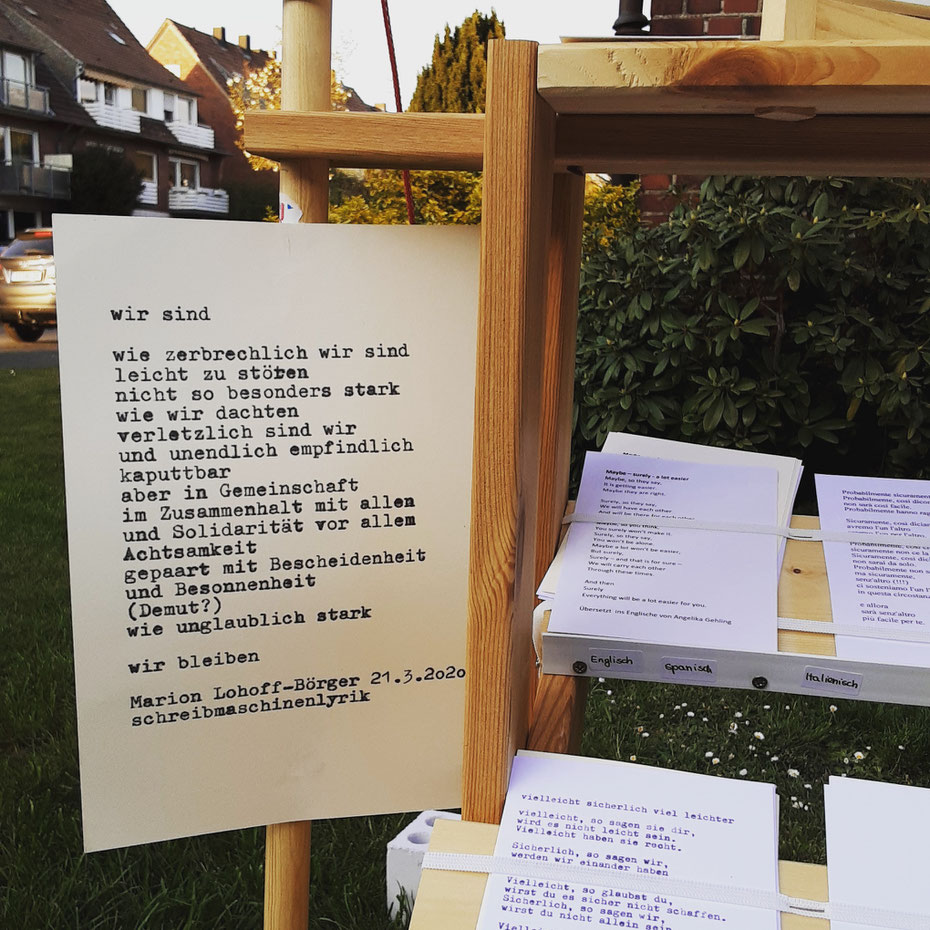 wir sind
wie zerbrechlich wir sind
leicht zu stören
nicht so besonders stark
wie wir dachten
verletzlich sind wir
und unendlich empfindlich
kaputtbar
aber in Gemeinschaft
im Zusammenhalt mit allen
und Solidarität vor allem
Achtsamkeit
gepaart mit Bescheidenheit
und Besonnenheit
(Demut?)
wie unglaublich stark
wir bleiben
Marion Lohoff-Börger 21.3.2020
schreibmaschinenlyrik
Maybe – surely - a lot easier
Maybe, so they say,
It is getting easier.
Maybe they are right.
Surely, so they say,
We will have each other
And will be there for each other.
Maybe, so you think,
You surely won't make it.
Surely, so they say,
You won't be alone.
Maybe a lot won't be easier,
But surely,
Surely – and that is for sure –
We will carry each other
Through these times.
And then
Surely
Everything will be a lot easier for you.
Übersetzt ins Englische von Angelika Gehling
Probabilmente sicuramente
Probabilmente, così dicono
non sarà così facile.
Probabilmente hanno
Sicuramente, così
avremo l'un l'altro
Probabilmente, così
sicuramente non ce la
Sicuramente, così
non sarai da solo.
Probabilmente non
ma sicuramente,
senz'altro (!!!)
ci sosteniamo l'un
in questa
e allora
sarà senz'altro
più facile per te.
Englisch
Spanisch
Italienisch
vielleicht sicherlich viel leichter
vielleicht, so sagen sie dir,
wird es nicht leicht sein.
Vielleicht haben sie recht.
Sicherlich, so sagen wir,
werden wir einander haben
Vielleicht, so glaubst du,
wirst du es sicher nicht schaffen.
Sicherlich, so sagen wir,
wirst du nicht allein sein.